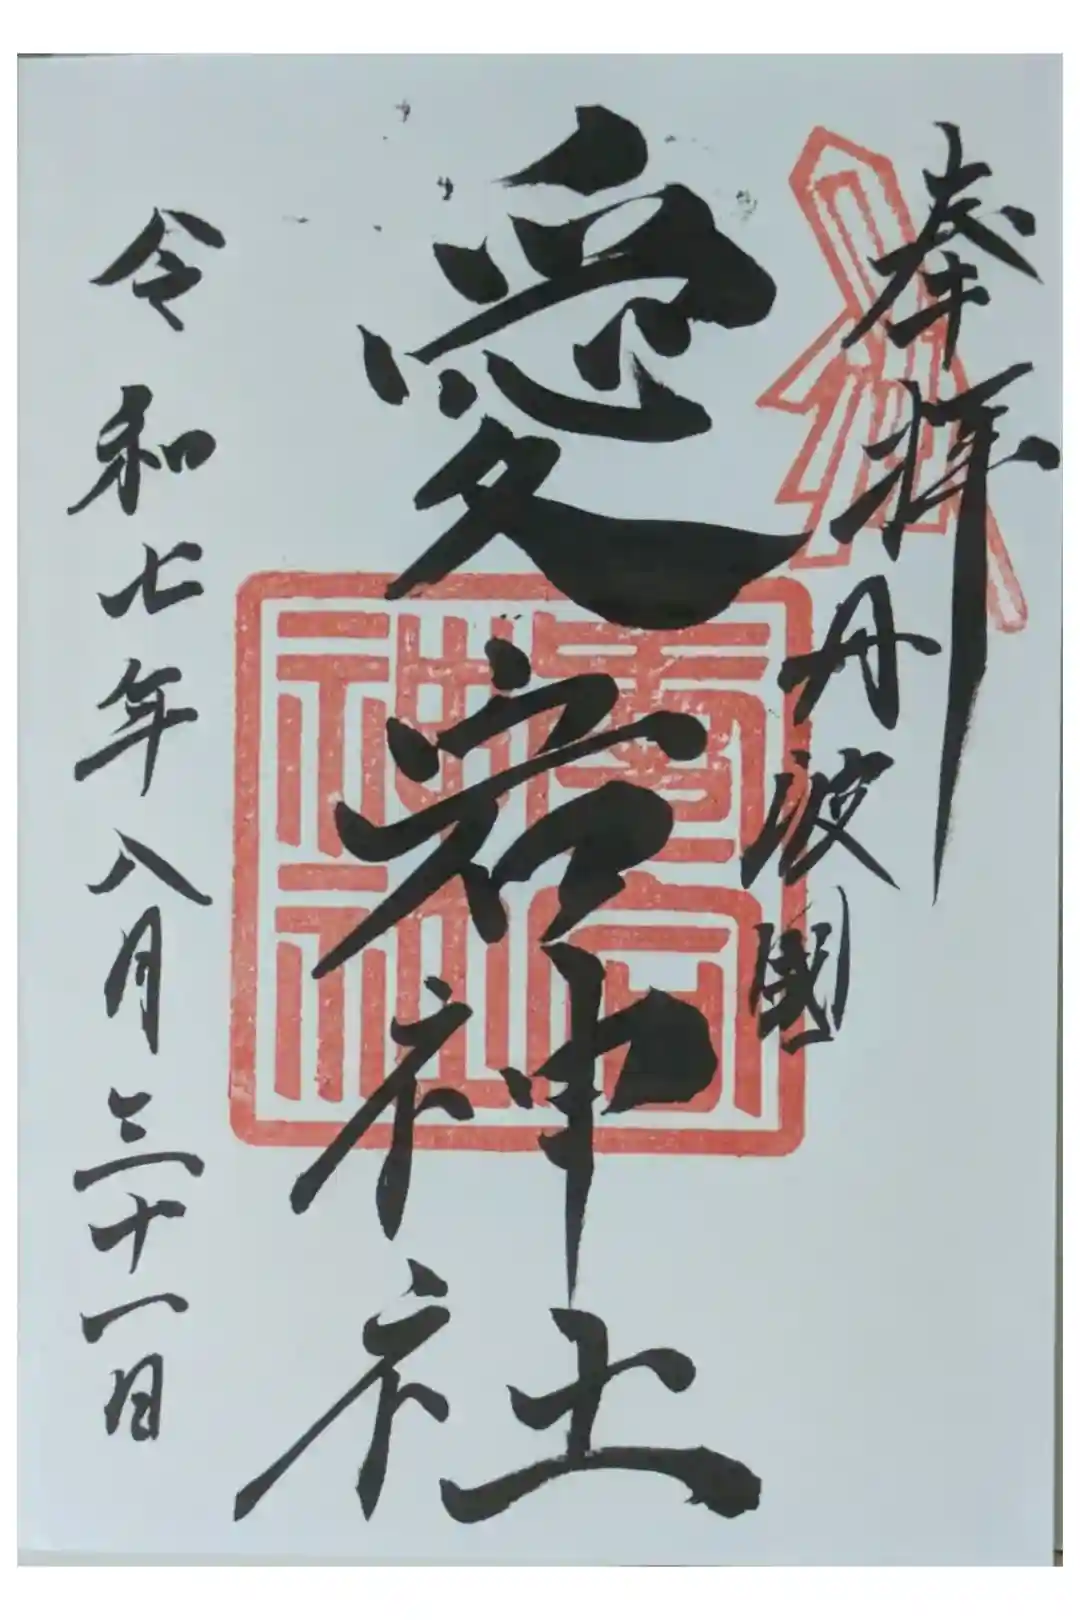 奉拝
丹波國
愛宕神社
愛宕神社
令和七年八月三十一日